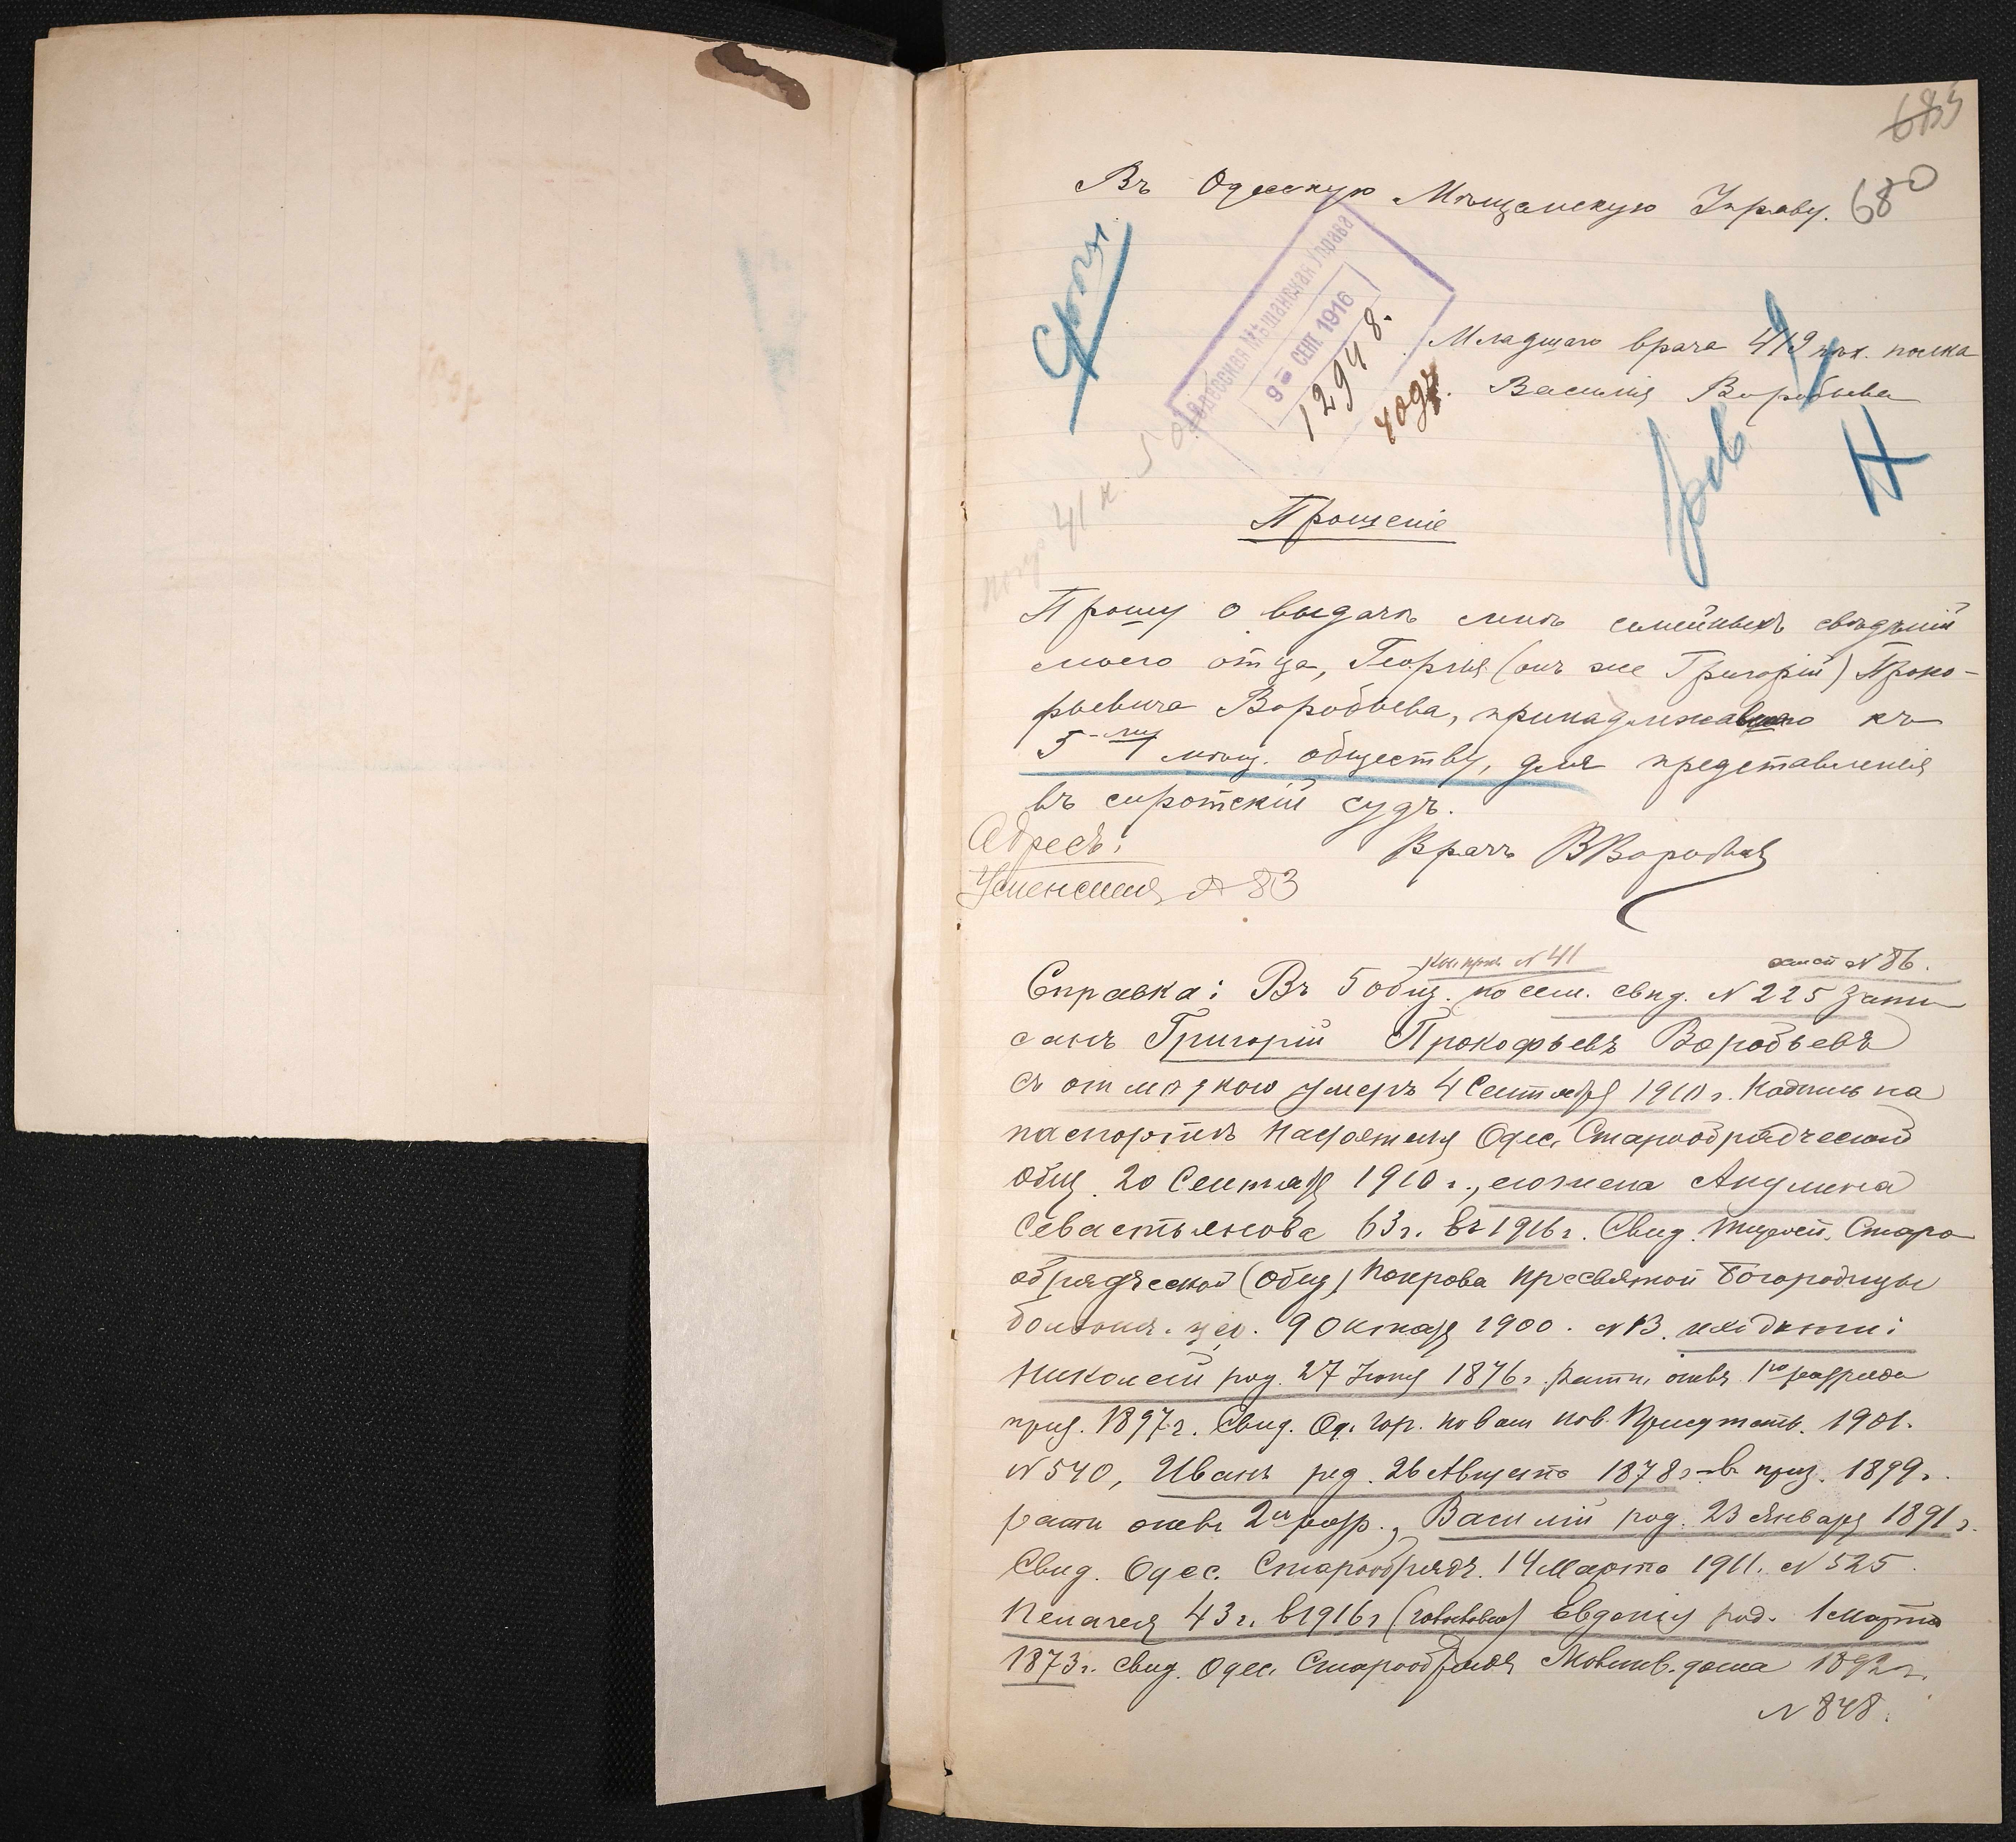 683
Въ Одесскую Мѣщанскую Управу. 680
Срочн
Одесская Мѣщанская Управа
9 - СЕНТ. 1916
12948.
Младшаго врача 419 пѣх. полка
Василія Воробьева
41 к. 5 общ
Н
Прошеніе
Прошу о выдачѣ мнѣ семейныхъ свѣдѣній
моего отца, Георгія (онъ же Григорій) Проко-
фьевича Воробьева, принадлежавшаго къ
5-му мѣщ. обществу, для представленія
въ сиротскій судъ.
Адресъ:
Врачъ ВВоробьевъ
Успенская № 83
№ 41
№ 86.
Справка: Въ 5 общ. по сем. свид. № 225 запи
санъ Григорій Прокофьевъ Воробьевъ
умеръ 4 Сентября 1910 г. Надпись на
паспортѣ Настоятеля Одес. Старообрядческой
общ. 20 Сентября 1910 г., его жена Акулина
Севастьянова 63 г. въ 1916 г. Свид. Старо
обрядческой (общ) Покрова Пресвятой Богородицы
9 Октября 1900. № 13. ихъ дѣти:
Николай род. 27 Іюня 1876 г. ратн. опол. 1го разряда
приз. 1897 г. Свид. Од. Гор. по воин. пов. Присутств. 1901.
№ 540, Иванъ род. 26 Августа 1878 г. въ приз. 1899 г.
ратн опол 2го разр., Василій род. 23 Января 1891 г.
Свид. Одес. Старообрядч. 14 Марта 1911. № 525.
Пелагея 43 г. в 1916 г Евдокія род. 1 Марта
1873 г. свид. Одес. Старообрядч Молитв. дома 1892 г.
№ 848.